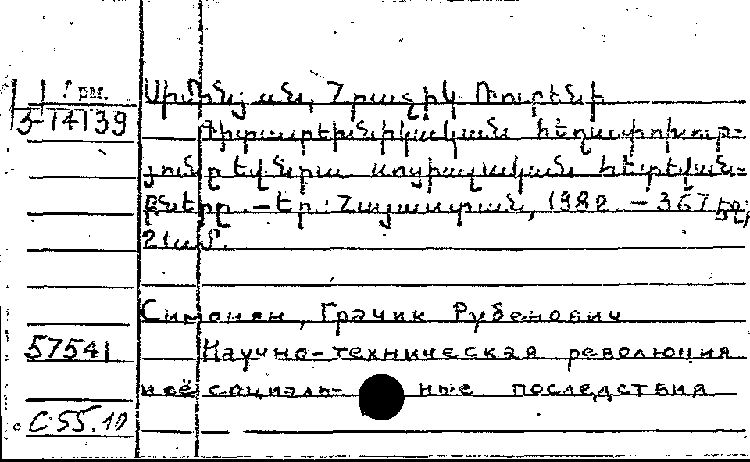 1 րм.
5-74139
Սիմոնյան, Հրաչիկ Ռուբենի
Գիտատեխնիկական հեղափոխութ-
յունը եվ նրա սոցիալական հետեվան-
քները. – Եր.: Հայաստան, 1980 – 367 էջ;
21սմ.
Симонян, Грачик Рубенович
57541
Научно-техническая революция
и её социаль- ные последствия
C 55.10